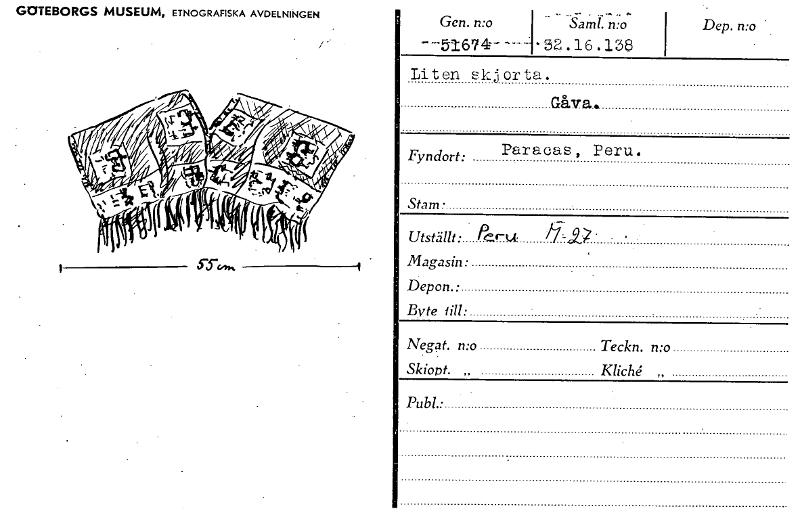 GÖTEBORGS MUSEUM, ETNOGRAFISKA AVDELNINGEN
55 cm
Gen. n:o Saml. n:o Dep. n:o
51674 32.16.138
Liten skjorta.
Gåva.
Fyndort: Paracas, Peru.
Stam:
Utställt: Peru M-27
Magasin:
Depon.:
Byte till:
Negat. n:o Teckn. n:o
Skiopt. „ Kliché „
Publ.: